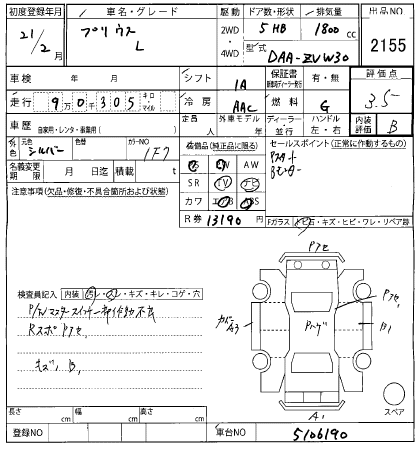 初度登録年月 車名・グレード 駆動 ドア数・形状 排気量 出品NO
21/2月 プリウス L 2WD 4WD 5 HB 1800 cc 2155
型式 DAA-ZVW30
車検 年 月 シフト IA 保証書 有・無 評価点
走行 9万0千305 キロ・マイル 冷房 AAC 燃料 G 3.5
車歴 自家用・レンタ・事業用( ) 定員 人 外車モデル 年 ディーラー 並行 ハンドル 左・右 内装評価 B
外色 元色 シルバー 色替 カラーNO 1F7 装備品(純正品に限る) セールスポイント(正常に作動するもの)
名義変更期限 月 日迄 積載 t PS PW AW Pスタート
SR TV ナビ
注意事項(欠品・修復・不具合箇所および状態) カワ エアB ABS
R券 13190 円 Fガラス トビ石・キズ・ヒビ・ワレ・リペア跡
Pアセ
検査員記入 内装 汚レ・スレ・キズ・キレ・コゲ・穴
RスポPアセ
キズ、B,
A3
Pハゲ
Pアセ,
B1
A1
スペア
長さ cm 幅 cm 高さ cm
登録NO 車台NO 5106190